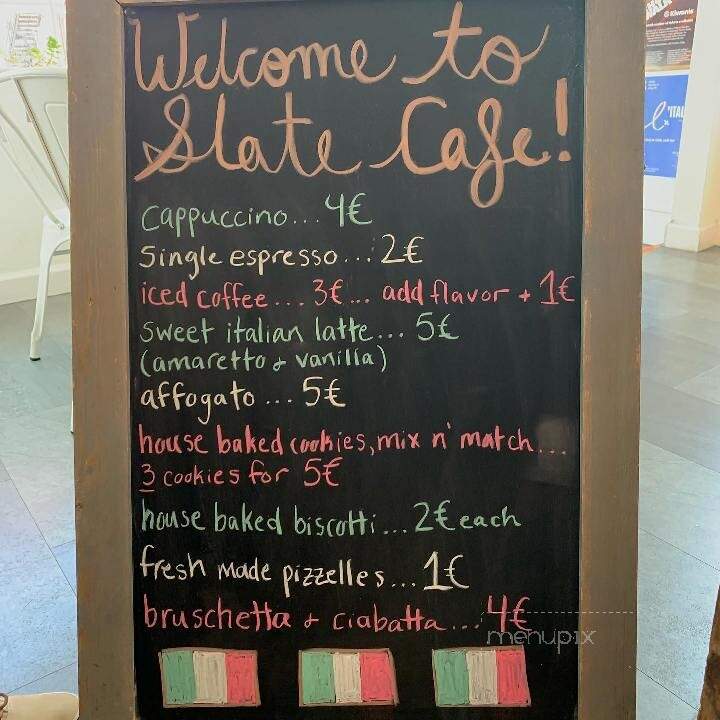 Welcome to
Slate Cafe!
cappuccino...4€
single espresso...2€
iced coffee...3€... add flavor + 1€
sweet italian latte... 5€
(amaretto + vanilla)
affogato ... 5€
house baked cookies, mix n' match...
3 cookies for 5€
house baked biscotti...2€ each
fresh made pizzelles...1€
bruschetta + ciabatta...4€
menupix
Kiwanis
"ITAL